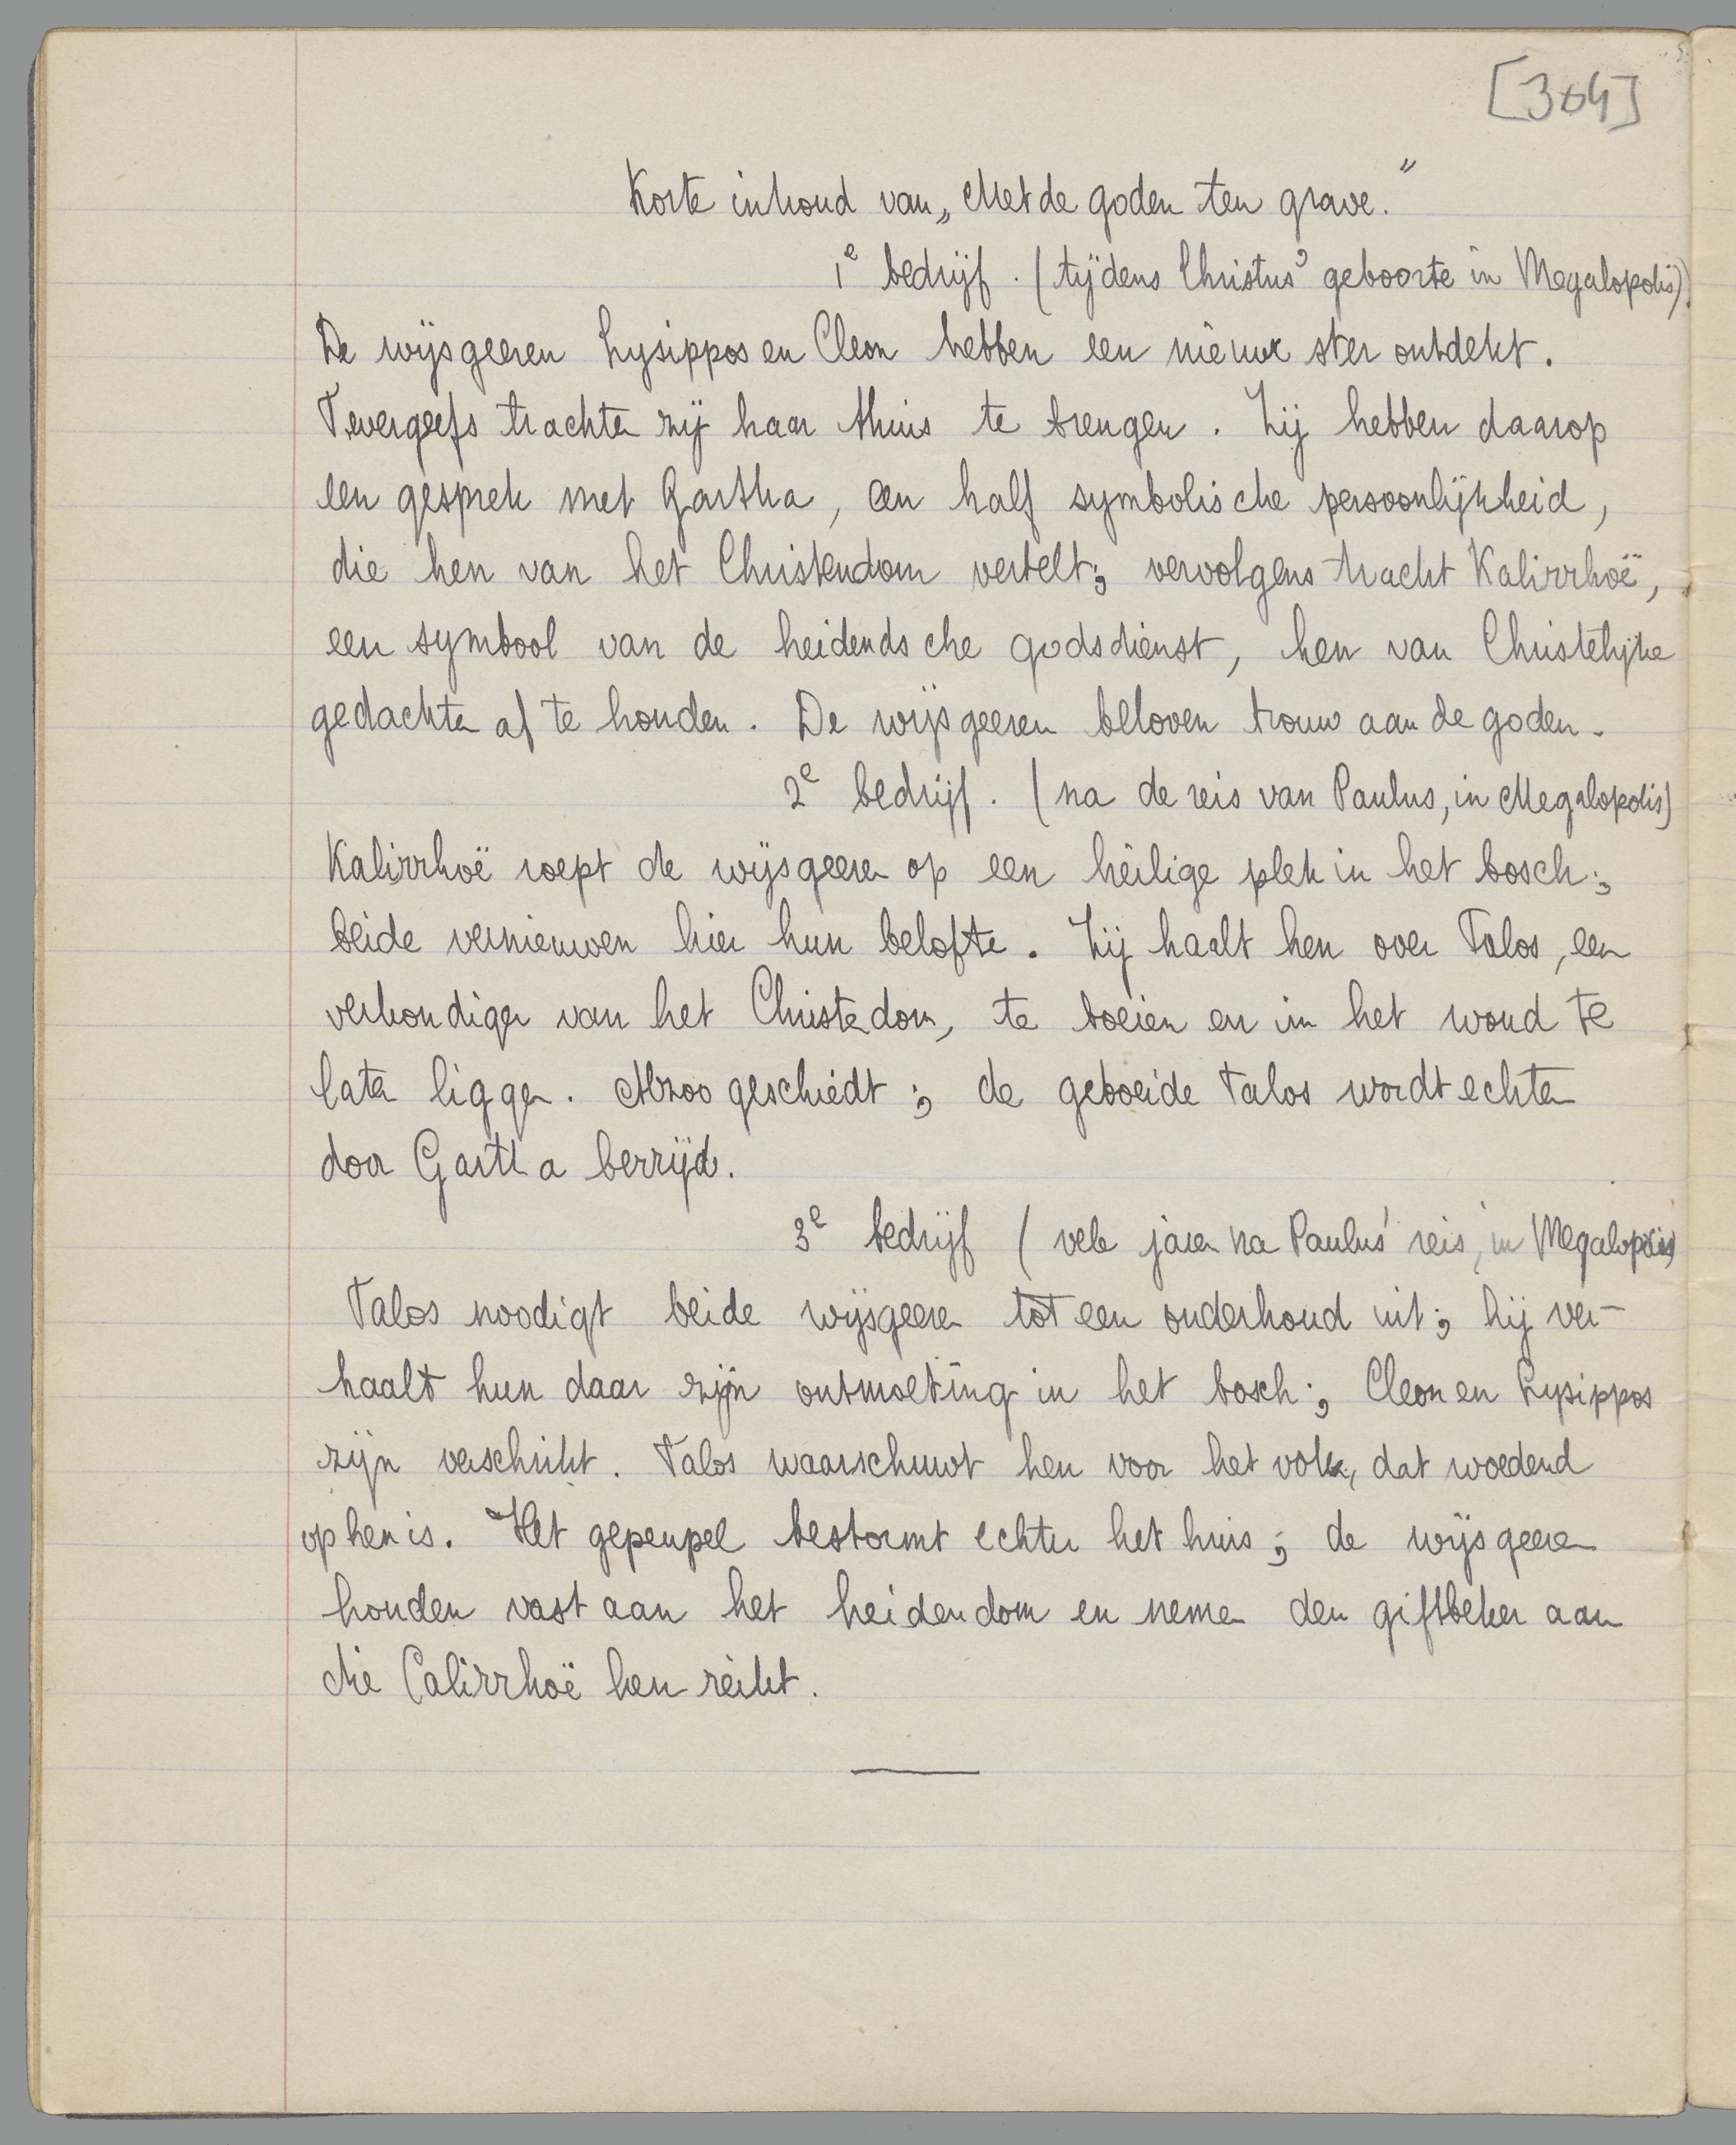 [304]
Korte inhoud van „Met de goden ten grave.”
1e bedrijf. (tijdens Christus' geboorte in Megalopolis).
De wijsgeeren Lysippos en Cleon hebben een nieuwe ster ontdekt.
Tevergeefs trachten zij haar thuis te brengen. Zij hebben daarop
een gesprek met Gartha, een half symbolische persoonlijkheid,
die hen van het Christendom vertelt; vervolgens tracht Kalirrhoë,
een symbool van de heidendsche godsdienst, hen van Christelijke
gedachten af te houden. De wijsgeeren beloven trouw aan de goden.
2e bedrijf. (na de reis van Paulus, in Megalopolis)
Kalirrhoë roept de wijsgeeren op een heilige plek in het bosch;
beide vernieuwen hier hun belofte. Zij haalt hen over Talos, een
verkondiger van het Christendom, te boeien en in het woud te
laten liggen. Alzoo geschiedt; de geboeide Talos wordt echter
door Gartha bevrijd.
3e bedrijf (vele jaren na Paulus' reis, in Megalopolis)
Talos noodigt beide wijsgeeren tot een onderhoud uit; hij ver-
haalt hun daar zijn ontmoeting in het bosch; Cleon en Lysippos
zijn verschrikt. Talos waarschuwt hen voor het volk, dat woedend
op hen is. Het gepeupel bestormt echter het huis; de wijsgeeren
houden vast aan het heidendom en nemen den giftbeker aan
die Calirrhoë hen reikt.